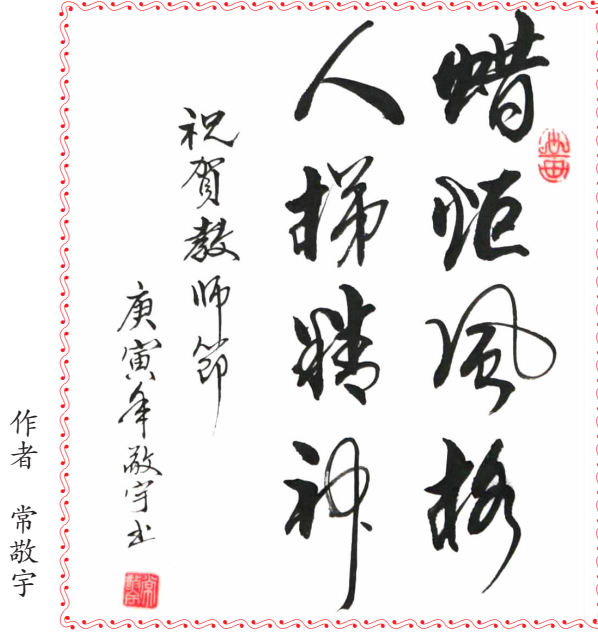 蜡炬风格
人梯精神
祝贺教师節
庚寅年敬宇书
作者 常敬宇